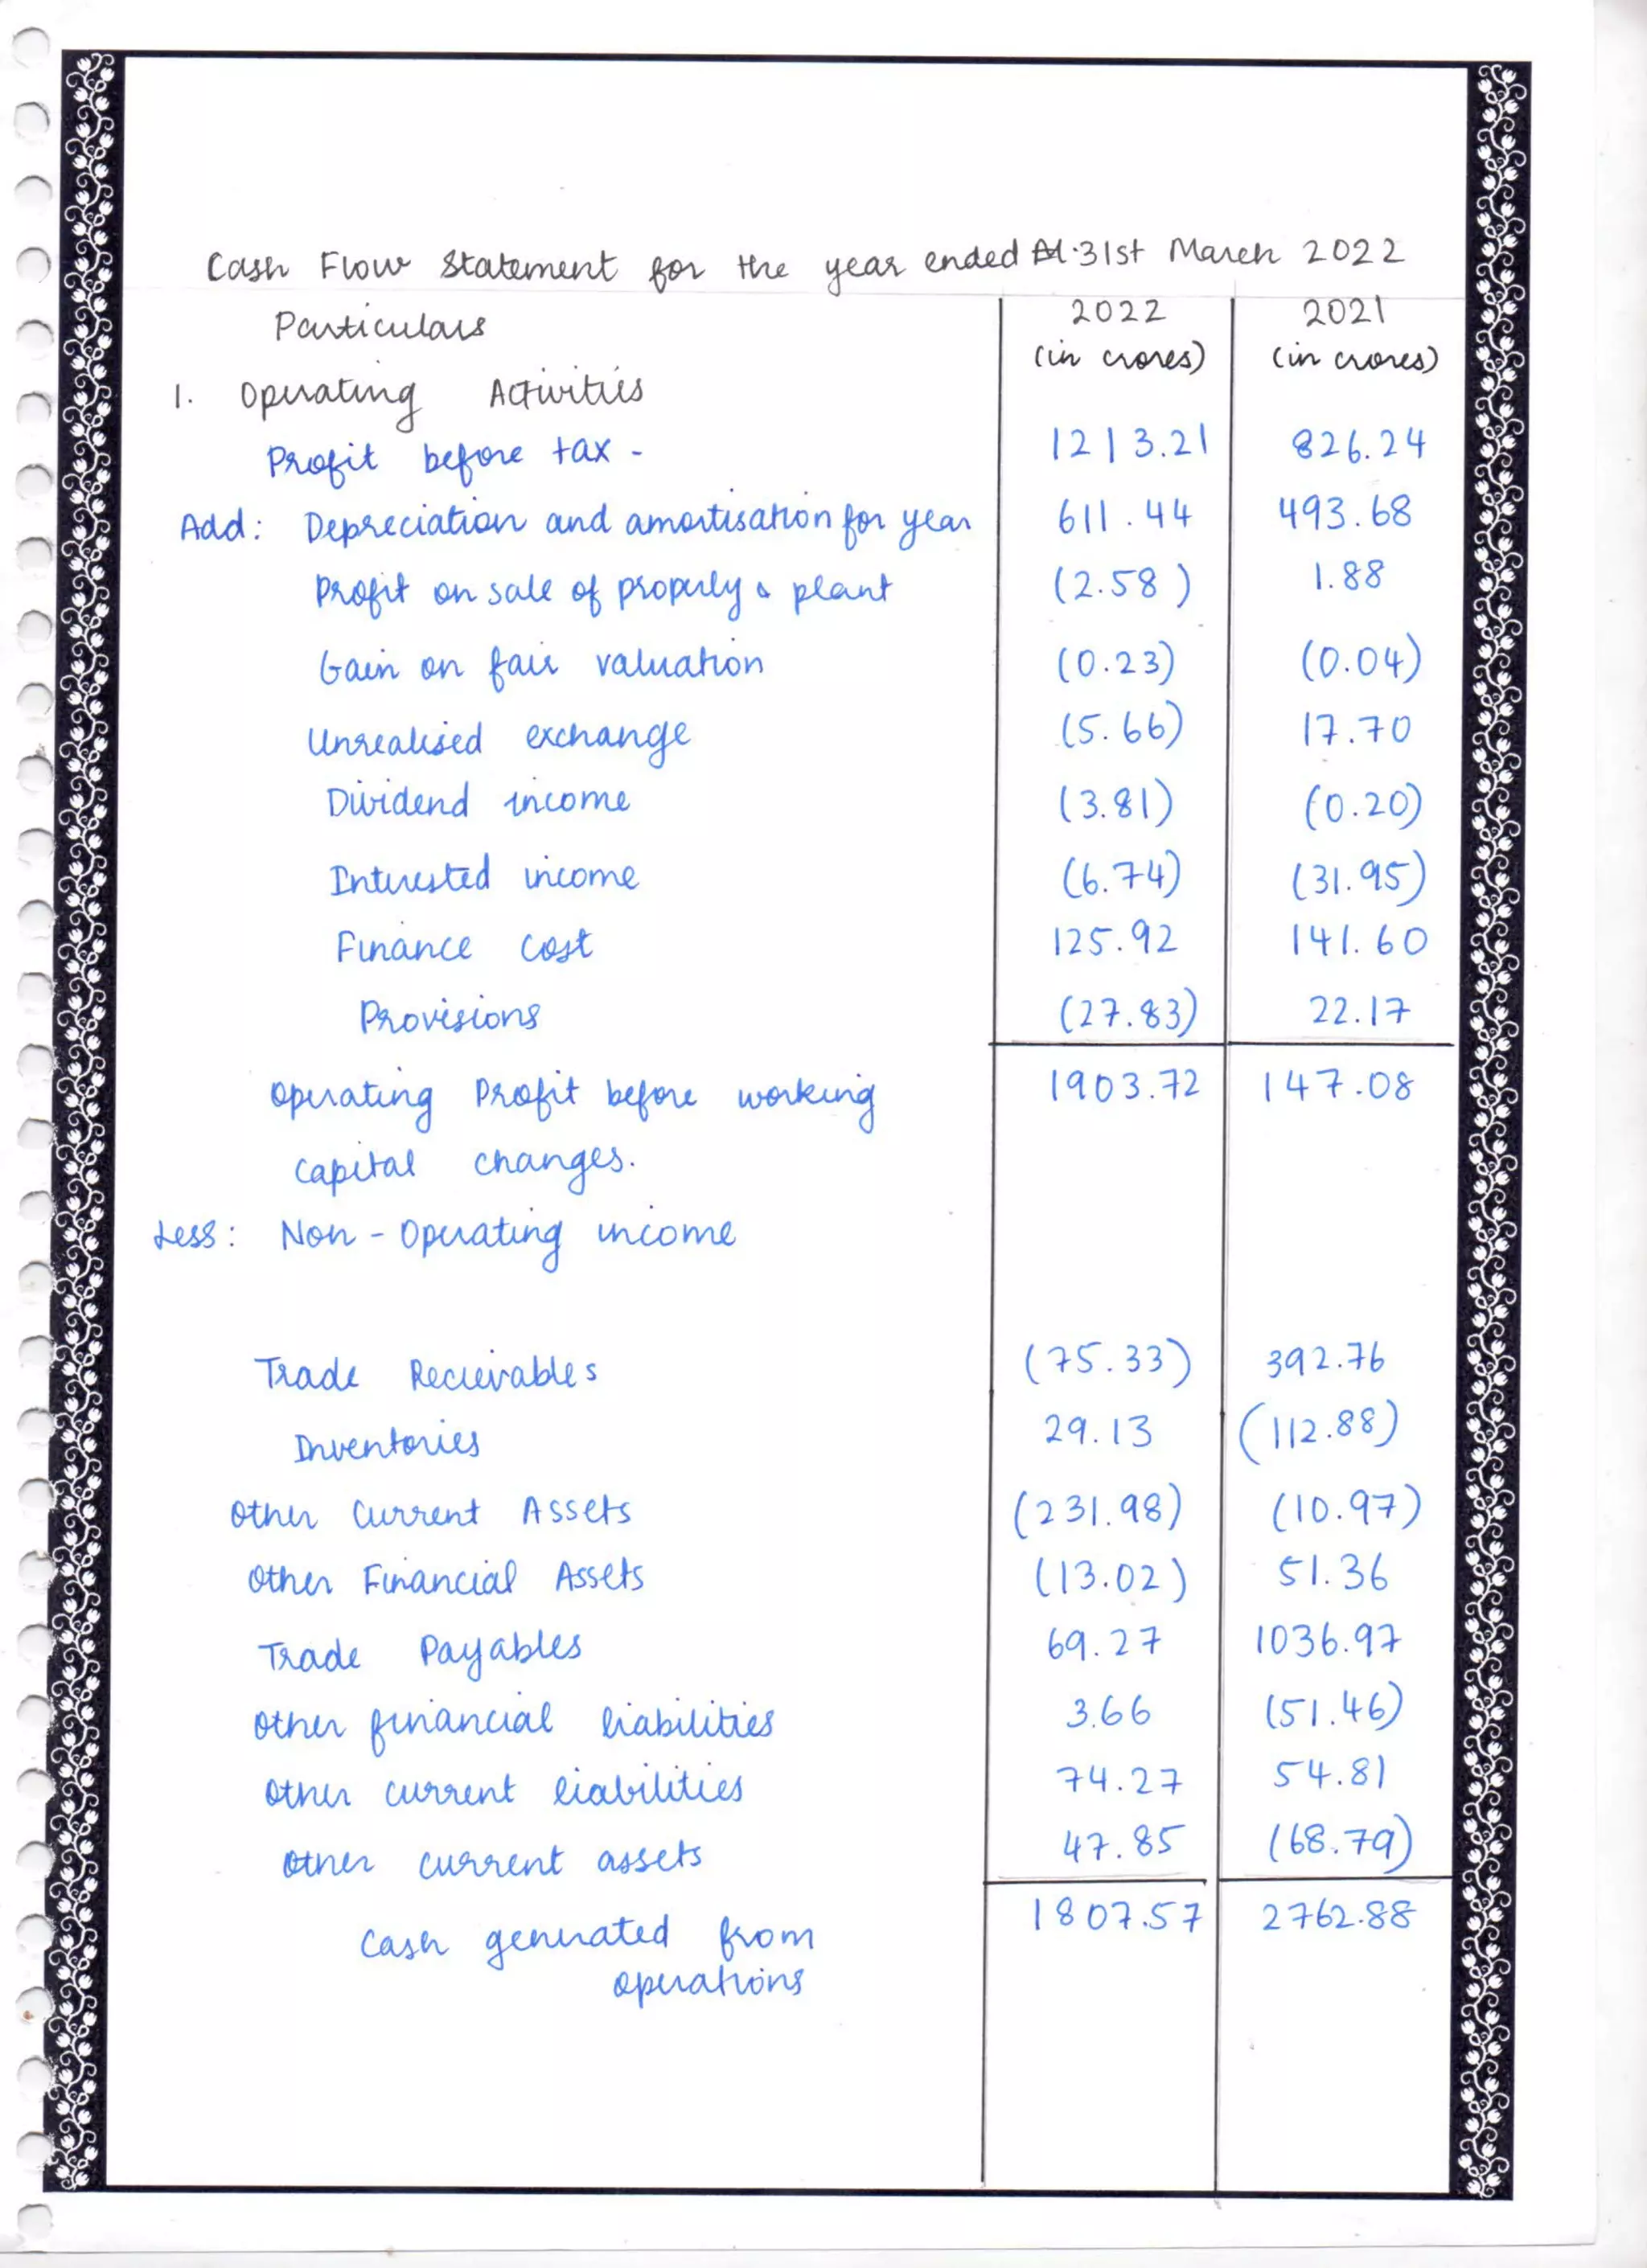 Cash Flow Statement for the year ended 31st March 2022
Particulars 2022 2021
(in crores) (in crores)
1. Operating Activities
Profit before tax - 1213.21 826.24
Add: Depreciation and amortisation for year 611.44 493.68
Profit on sale of property & plant (2.58) 1.88
Gain on fair valuation (0.23) (0.04)
Unrealised exchange (5.66) 17.70
Dividend income (3.81) (0.20)
Interested income (6.74) (31.95)
Finance cost 125.92 141.60
Provisions (27.83) 22.17
Operating Profit before working 1903.72 147.08
capital changes.
Less: Non-Operating income
Trade Recievables (75.33) 392.76
Inventories 29.13 (112.88)
Other Current Assets (231.98) (10.97)
Other Financial Assets (13.02) 51.36
Trade Payables 69.27 1036.97
Other financial liabilities 3.66 (51.46)
Other current liabilities 74.27 54.81
Other current assets 47.85 (68.79)
Cash generated from 1807.57 2762.88
operations